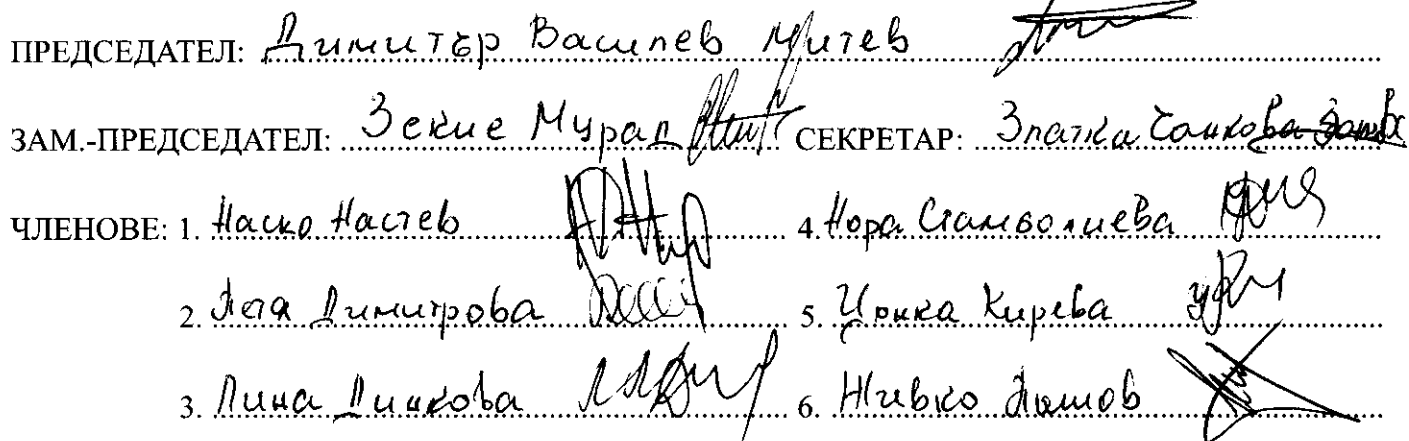 ПРЕДСЕДАТЕЛ: Димитър Василев Митев
ЗАМ.-ПРЕДСЕДАТЕЛ: Зекие Мурад СЕКРЕТАР: Златка Чанкова
ЧЛЕНОВЕ: 1. Наско Настев 4. Нора Стамболиева
2. Петя Димитрова 5. Цонка Кирева
3. Лина Динкова 6. Живко